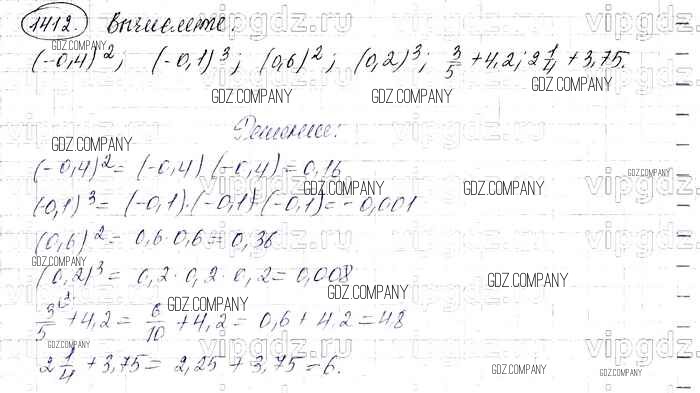 1412. Вычислите:
(-0,4)²; (-0,1)³; (0,6)²; (0,2)³; 3/5 + 4,2; 2 1/4 + 3,75.
Решение:
(-0,4)² = (-0,4)·(-0,4) = 0,16
(-0,1)³ = (-0,1)·(-0,1)·(-0,1) = -0,001
(0,6)² = 0,6·0,6 = 0,36
(0,2)³ = 0,2·0,2·0,2 = 0,008
3/5 + 4,2 = 6/10 + 4,2 = 0,6 + 4,2 = 4,8
2 1/4 + 3,75 = 2,25 + 3,75 = 6.
GDZ.COMPANY
vipgdz.ru